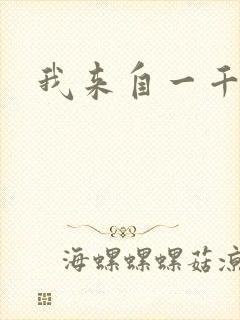 我来自一千
海螺螺螺菇